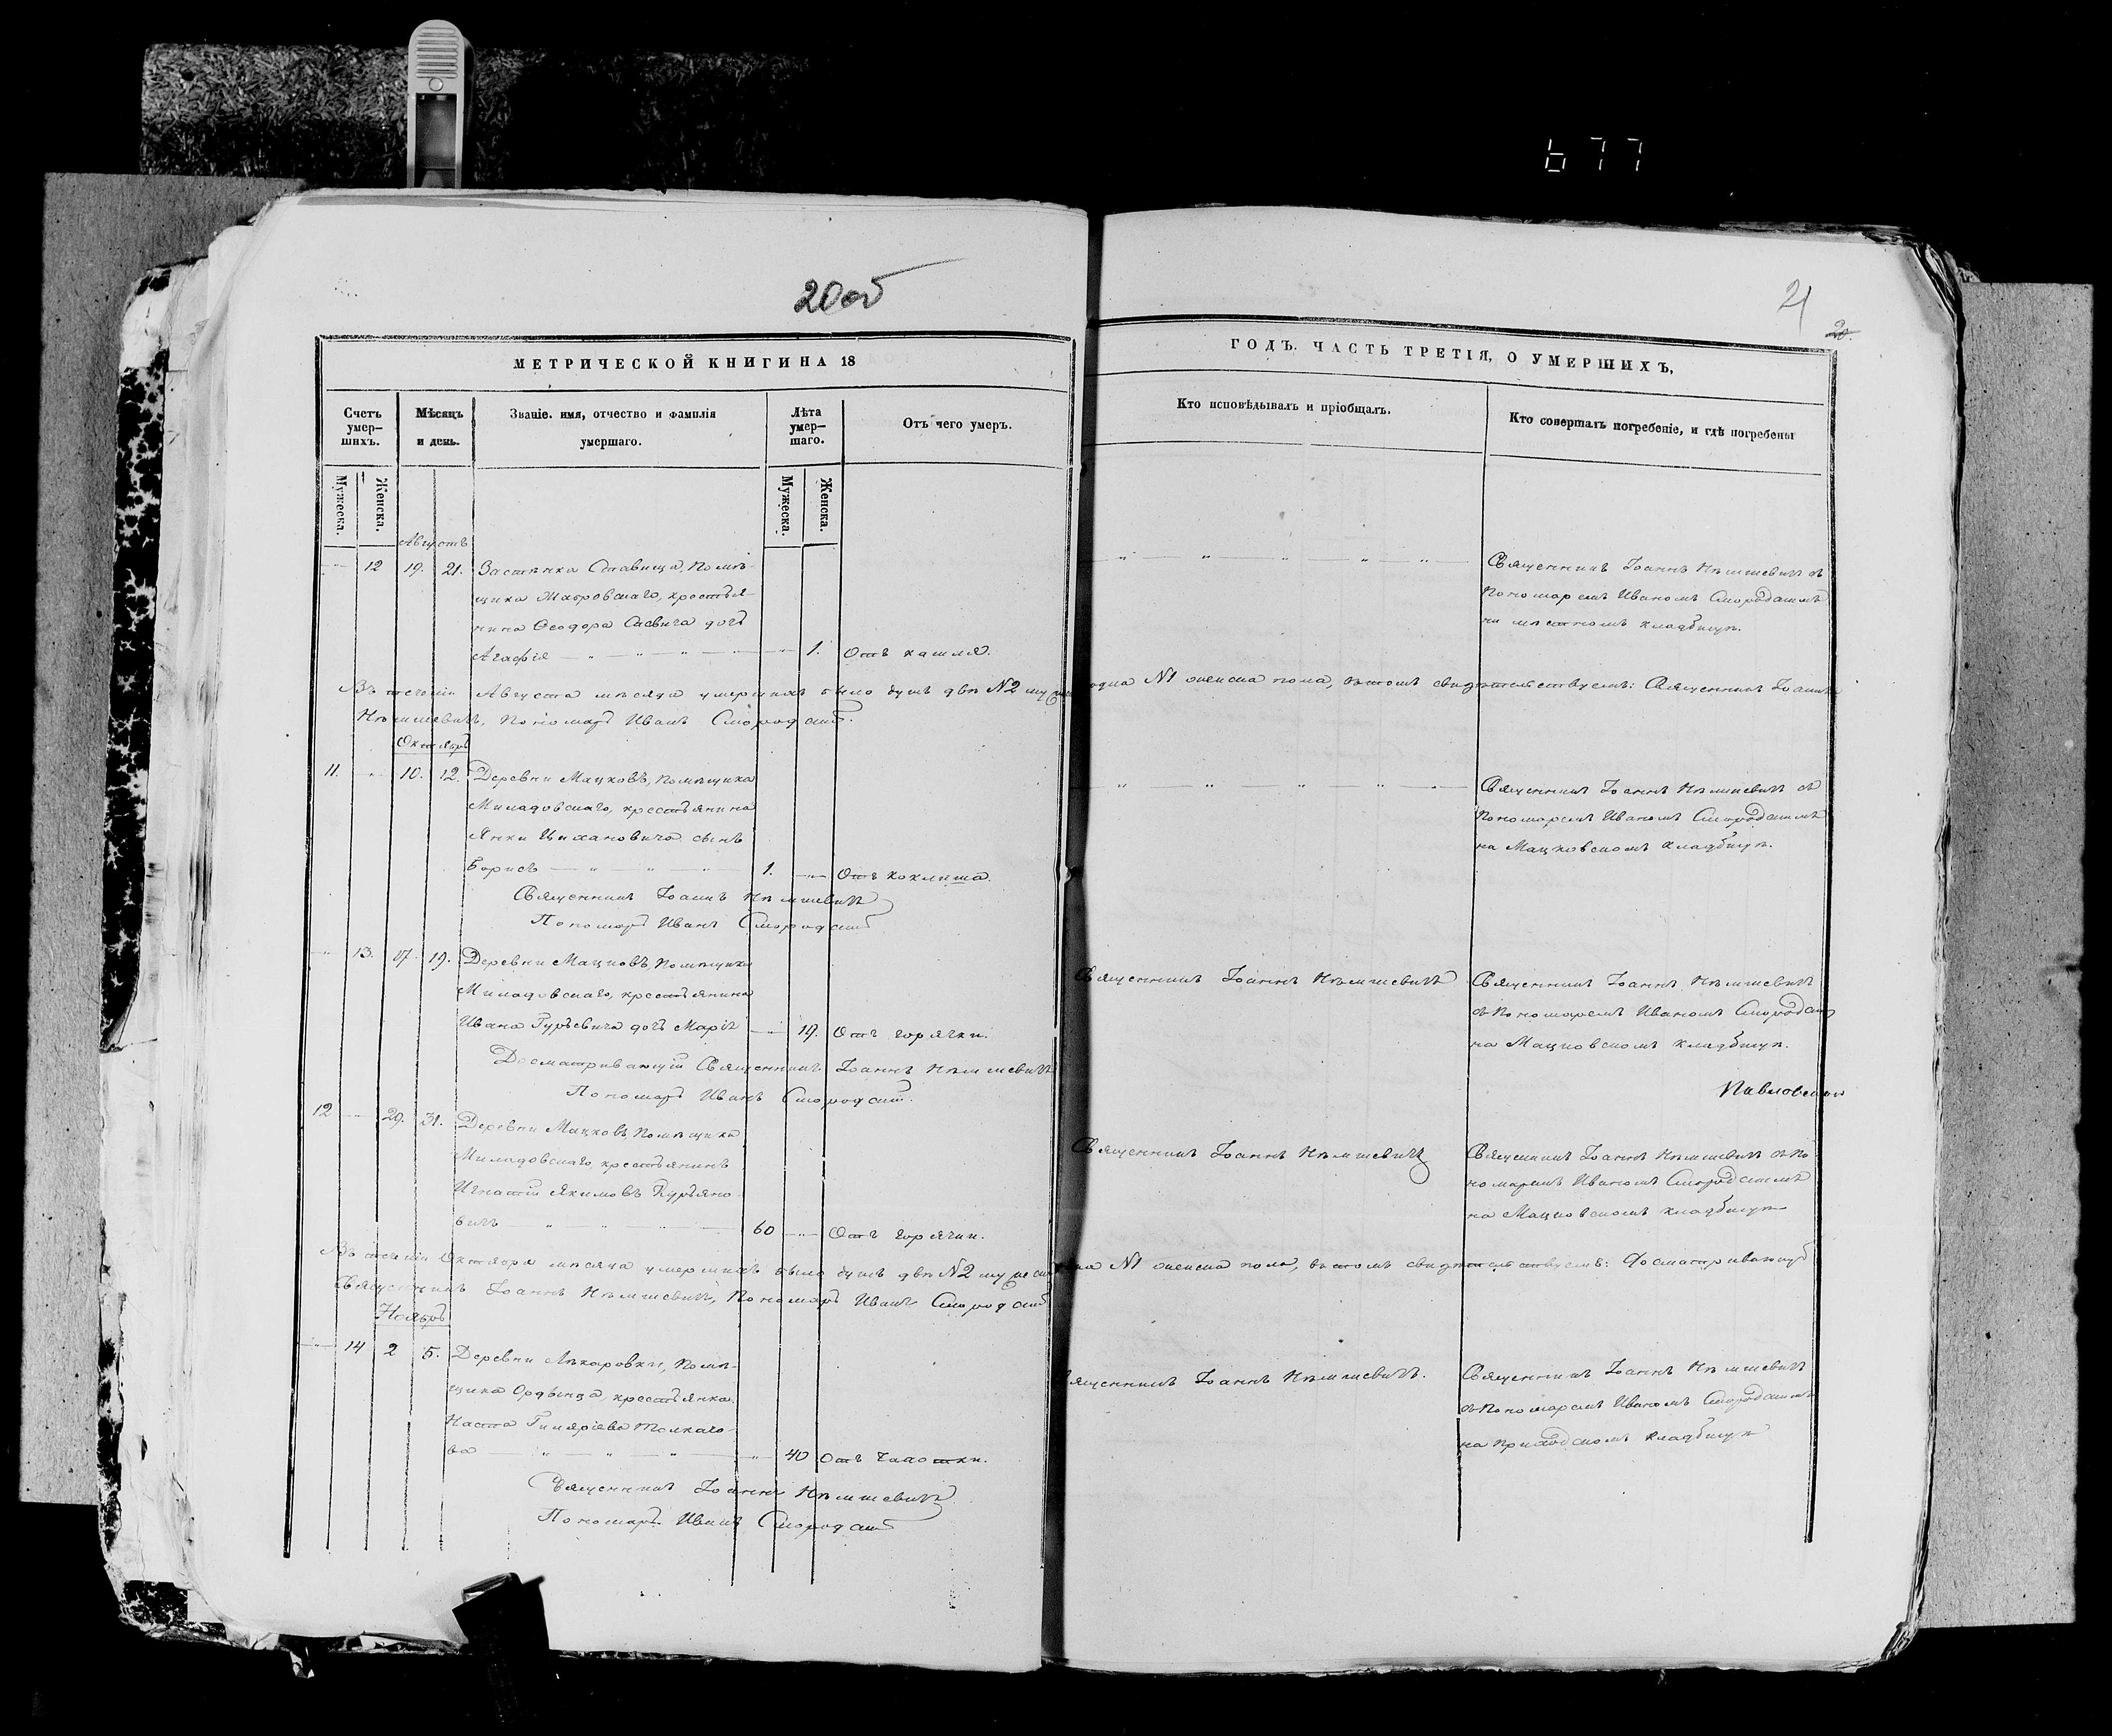 677
20об
21
20.
МЕТРИЧЕСКОЙ КНИГИ НА 18
ГОДЪ. ЧАСТЬ ТРЕТІЯ, О УМЕРШИХЪ,
Счетъ умер-шихъ.
Мѣсяцъ и день.
Званіе. имя, отчество и фамилія умершаго.
Лѣта умер-шаго.
Отъ чего умеръ.
Кто исповѣдывалъ и пріобщалъ.
Кто совершалъ погребеніе, и гдѣ погребены
Мужеска.
Женска.
Мужеска.
Женска.
Августъ
12 19. 21. Застѣнка Ставища, Помѣ-
щика Мавровскаго, крестья-
нина Ѳеодора Савича дочь
Агафія 1. Отъ кашля.
Священникъ Іоаннъ Нѣмшевичъ съ
Пономаремъ Иваномъ Смородскимъ
на мѣстномъ кладбищѣ.
Въ теченіи Августа мѣсяца умершихъ было душъ двѣ №2 мужеска одна №1 женска пола, въ томъ свидѣтельствуемъ: Священникъ Іоаннъ
Нѣмшевичъ, Пономарь Иванъ
Октябрь
11. 10. 12. Деревни Мацковъ, Помѣщика
Миладовскаго, крестьянина
Янки Цихановича сынъ
Борисъ 1. Отъ коклюша.
Священникъ Іоаннъ Нѣмшевичъ съ
Пономаремъ Иваномъ Смородскимъ
на Мацковскомъ кладбищѣ.
Священникъ Іоаннъ Нѣмшевичъ
Пономарь Иванъ
13. 17. 19. Деревни Мацковъ, Помѣщика
Миладовскаго, крестьянина
Ивана Гурьевича дочь Марія 19. Отъ горячки.
Священникъ Іоаннъ Нѣмшевичъ
Священникъ Іоаннъ Нѣмшевичъ
съ Пономаремъ Иваномъ
на Мацковскомъ кладбищѣ.
Досматривающій Священникъ Іоаннъ Нѣмшевичъ
Пономарь Иванъ
12 29. 31. Деревни Мацковъ, Помѣщика
Миладовскаго, крестьянинъ
Игнатій Якимовъ Гурьяно-
вичъ 60 Отъ горячки.
Священникъ Іоаннъ Нѣмшевичъ
Священникъ Іоаннъ Нѣмшевичъ съ По
номаремъ Иваномъ Смородскимъ
на Мацковскомъ кладбищѣ
Въ теченіи Октября мѣсяца умершихъ было душъ двѣ №2 мужеска одна №1 женска пола, въ томъ свидѣтельствуемъ: Досматривающій
Священникъ Іоаннъ Нѣмшевичъ, Пономарь Иванъ
Ноябрь
14 2 5. Деревни Макаровки, Помѣ-
щика Ордынца, крестьянка
Наста Гиляріева Толкаче-
ва 40 Отъ чахотки.
Священникъ Іоаннъ Нѣмшевичъ.
Священникъ Іоаннъ Нѣмшевичъ
съ Пономаремъ Иваномъ Смородскимъ
на приходскомъ кладбищѣ
Священникъ Іоаннъ Нѣмшевичъ
Пономарь Иванъ